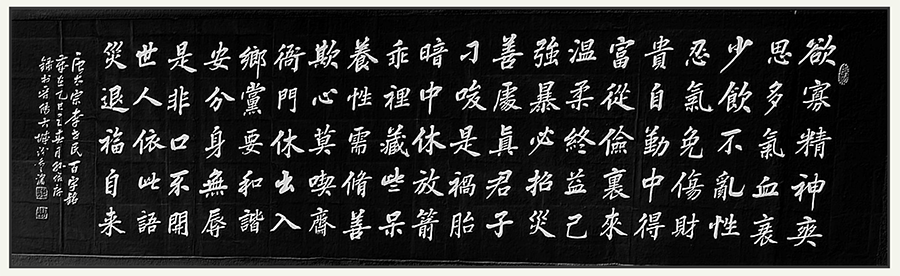 欲寡精神爽
思多氣血衰
少飲不亂性
忍氣免傷財
貴自勤中得
富從儉裏來
温柔終益己
強暴必招災
善處真君子
刁唆是禍胎
暗中休放箭
乖裡藏些呆
養性需脩善
欺心莫喫齊
衙門休出入
鄉黨要和諧
安分身無辱
是非口不開
世人依此語
災退福自来
唐太宗李世民百字銘
歲在乙巳